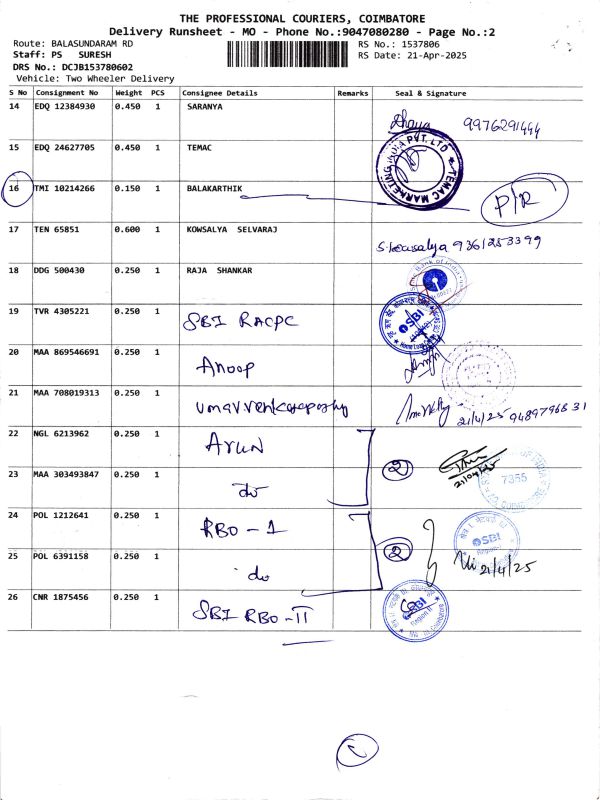 THE PROFESSIONAL COURIERS, COIMBATORE
Delivery Runsheet - MO - Phone No.:9047080280 - Page No.:2
Route: BALASUNDARAM RD RS No.: 1537806
Staff: PS SURESH RS Date: 21-Apr-2025
DRS No.: DCJB153780602
Vehicle: Two Wheeler Delivery
S No Consignment No Weight PCS Consignee Details Remarks Seal & Signature
14 EDQ 12384930 0.450 1 SARANYA
Dhaya 9976291444
15 EDQ 24627705 0.450 1 TEMAC
TEMAC MARKETING INDIA PVT.LTD
16 TMI 10214266 0.150 1 BALAKARTHIK
P/R
17 TEN 65851 0.600 1 KOWSALYA SELVARAJ
S. Kowsalya 9361253399
18 DDG 500430 0.250 1 RAJA SHANKAR
19 TVR 4305221 0.250 1 SBI RACPC
SBI
20 MAA 869546691 0.250 1 Anoop
21 MAA 708019313 0.250 1
21/4/25 9489796831
22 NGL 6213962 0.250 1 Arun
2
21/04/25
7355
23 MAA 303493847 0.250 1 do
24 POL 1212641 0.250 1 RBO-1
2
SBI
21/4/25
25 POL 6391158 0.250 1 do
26 CNR 1875456 0.250 1 SBI RBO-II
SBI